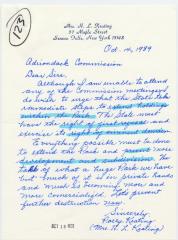 123
Mrs. H. L. Keating
27 Maple Street
Seneca Falls, New York 13148
Oct. 14, 1989
Adirondack Commission
Dear Sirs:
Although I am unable to attend
any of the Commission meetings I
do wish to urge that the State take
immediate steps to extend holdings
within the Park. The State must
have the right of first refusal and
exercise its right of eminent domain.
Everything possible must be done
to extend the Park and prevent more
development and subdivision. The
idea of what a huge Park we have
but much of it is in private hands
and much is becoming more and
more commercialized. Please prevent
further destruction now.
Sincerely,
Keating
(Mrs. H. L. Keating)
OCT 18 1989